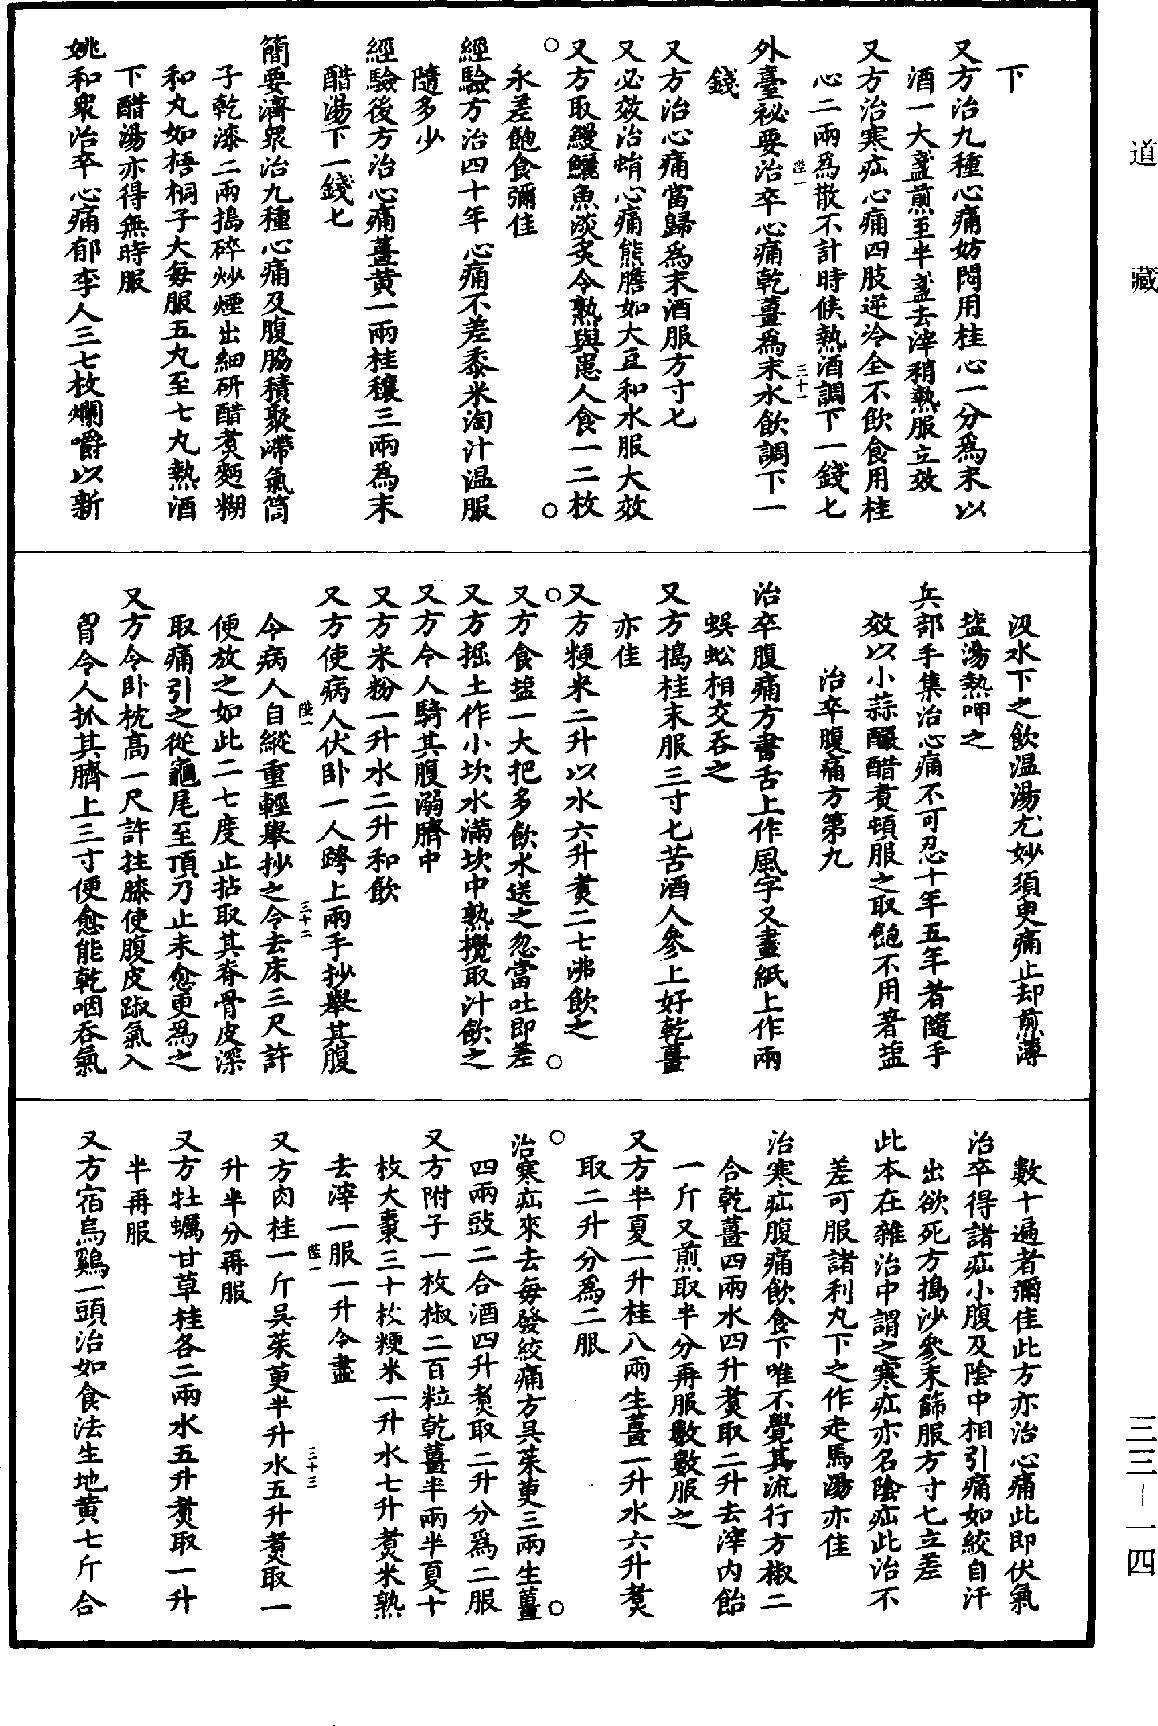 道藏
下
又方治九種心痛妨悶用桂心一分爲末以
酒一大盞煎至半盞去滓稍熱服立效
又方治寒疝心痛四肢逆冷全不飲食用桂
心二兩爲散不計時候熱酒調下一錢匕
陛一
三十一
外臺祕要治卒心痛乾薑爲末水飲調下一
錢
又方治心痛當歸爲末酒服方寸匕
又必效治蛕心痛熊膽如大豆和水服大效
又方取鰻鱺魚淡炙令熟與患人食一二枚
永差飽食彌佳
經驗方治四十年心痛不差黍米淘汁温服
隨多少
經驗後方治心痛薑黄一兩桂穰三兩爲末
醋湯下一錢匕
簡要濟衆治九種心痛及腹脇積聚滯氣筒
子乾漆二兩搗碎炒煙出細研醋煑麪糊
和丸如梧桐子大每服五丸至七丸熱酒
下醋湯亦得無時服
姚和衆治卒心痛郁李人三七枚爛嚼以新
汲水下之飲温湯尤妙須臾痛止却煎薄
塩湯熱呷之
兵部手集治心痛不可忍十年五年者隨手
效以小蒜釅醋煑頓服之取飽不用著塩
治卒腹痛方第九
治卒腹痛方書舌上作風字又畫紙上作兩
蜈蚣相交吞之
又方搗桂末服三寸匕苦酒人參上好乾薑
亦佳
又方粳米二升以水六升煑二七沸飲之
又方食塩一大把多飲水送之忽當吐即差
又方掘土作小坎水滿坎中熟攪取汁飲之
又方令人騎其腹溺臍中
又方米粉一升水二升和飲
又方使病人伏卧一人跨上兩手抄舉其腹
陛一
三十二
令病人自縱重輕舉抄之令去床三尺許
便放之如此二七度止拈取其脊骨皮深
取痛引之從龜尾至頂乃止未愈更爲之
又方令卧枕高一尺許拄膝使腹皮踧氣入
胷令人抓其臍上三寸便愈能乾咽吞氣
數十遍者彌佳此方亦治心痛此即伏氣
治卒得諸疝小腹及陰中相引痛如絞自汗
出欲死方搗沙參末篩服方寸匕立差
此本在雜治中謂之寒疝亦名陰疝此治不
差可服諸利丸下之作走馬湯亦佳
治寒疝腹痛飲食下唯不覺其流行方椒二
合乾薑四兩水四升煑取二升去滓内飴
一斤又煎取半分再服數數服之
又方半夏一升桂八兩生薑一升水六升煑
取二升分爲二服
治寒疝來去每發絞痛方吳茱萸三兩生薑
四兩豉二合酒四升煑取二升分爲二服
又方附子一枚椒二百粒乾薑半兩半夏十
枚大棗三十枚粳米一升水七升煑米熟
去滓一服一升令盡
陛一
三十三
又方肉桂一斤吳茱萸半升水五升煑取一
升半分再服
又方牡蠣甘草桂各二兩水五升煑取一升
半再服
又方宿烏鷄一頭治如食法生地黄七斤合
三三－一四